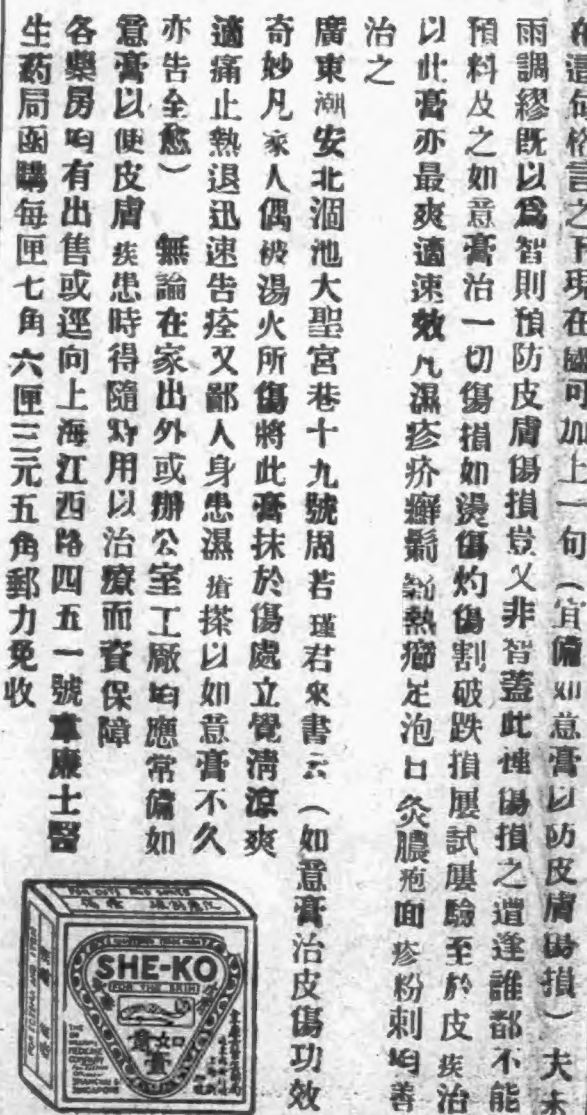 之下現在國可加上一句（宜備如意膏以防皮膚傷損）夫未
雨調繆既以爲智則預防皮膚傷損豈又非智蓋此種傷損之遭逢誰都不能
預料及之如意膏治一切傷損如燙傷灼傷割破跌損屢試屢驗至於皮疾治
以此膏亦最爽適速效凡濕疹疥癬鬎瘌熱癤足泡日灸膿疱面疹粉刺均善
治之
廣東潮安北涸池大聖宮巷十九號周若瑾君來書云（如意膏治皮傷功效
奇妙凡家人偶被湯火所傷將此膏抹於傷處立覺清涼爽
適痛止熱退迅速告痊又鄙人身患濕瘡搽以如意膏不久
亦告全愈）　無論在家出外或辦公室工廠均應常備如
意膏以便皮膚疾患時得隨時用以治療而資保障
各藥房均有出售或逕向上海江西路四五一號韋廉士醫
生葯局函購每匣七角六匣三元五角郵力免收
SHE-KO
FOR THE SKIN
如意膏
THE
DR
WILLIAMS
MEDICINE
COMPANY
SHANGHAI &
SINGAPORE